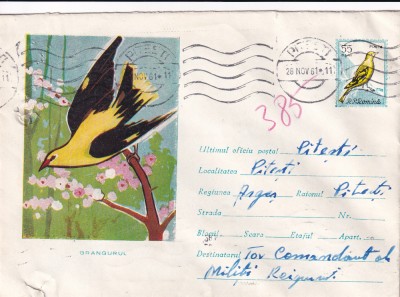 PITEȘTI
28 NOV 61 * 11
NOV 61 * 11
55
R.P. Romînă
385
Ultimul oficiu poștal Pitești
Localitatea Pitești
Regiunea Argeș Raionul Pitești
Strada Nr.
Blocul Scara Etajul Apart.
Destinatarul Tov. Comandant al
Miliției
GRANGURUL